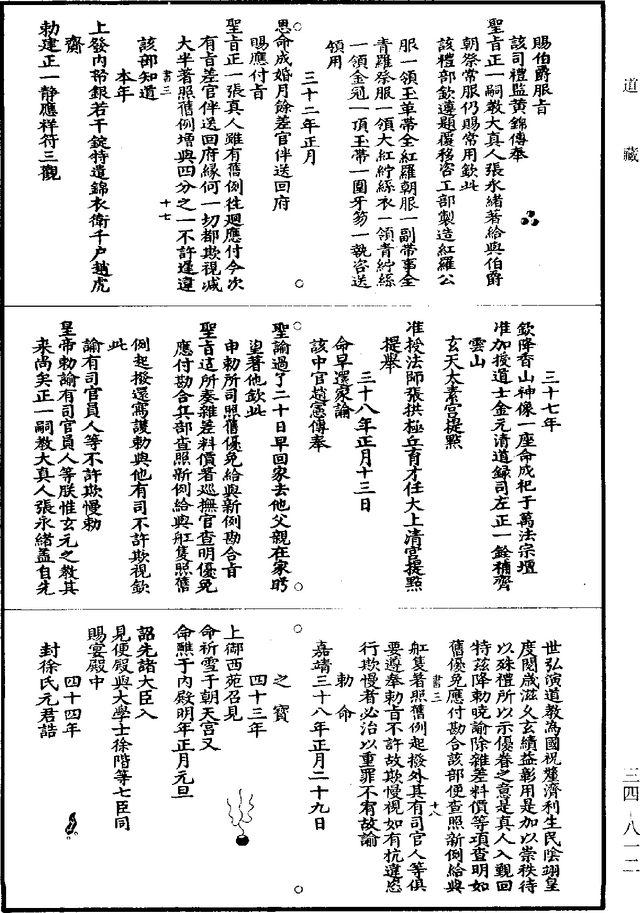 道藏
賜伯爵服㫖
該司禮監黃錦傳奉
聖㫖正一嗣教大真人張永緒著給與伯爵
朝祭常服仍賜常用欽此
該禮部欽遵題覆移咨工部製造紅羅公
服一領玉革帶全紅羅朝服一副帶事全
青羅祭服一領大紅紵絲衣一領青紵絲
一領金冠一頂玉帶一圍牙笏一執咨送
領用
三十二年正月
恩命成婚月餘差官伴送回府
賜應付㫖
聖㫖正一張真人雖有舊例徃廻應付今次
有㫖差官伴送回府緣何一切都欺視減
大半著照舊例增與四分之一不許遲違
書三
十七
該部知道
本年
上發内帑銀若干錠特遣錦衣衛千户趙虎
齎
勅建正一静應祥符三觀
三十七年
欽降香山神像一座命成祀于萬法宗壇
准加授道士金元清道錄司左正一銓補齊
雲山
玄天太素宫提點
准授法師張拱極丘育才任大上清宫提點
提舉
三十八年正月十三日
命早還家諭
該中官趙憲傳奉
聖諭過了二十日早回家去他父親在家盼
望著他欽此
申勅所司照舊優免給與新例勘合㫖
聖㫖這所奏雜差料價著巡撫官查明優免
應付勘合兵部查照新例給與舡隻照舊
例起撥還寫護勅與他有司不許欺視欽
此
諭有司官員人等不許欺慢勅
皇帝勅諭有司官員人等朕惟玄元之教其
来尚矣正一嗣教大真人張永緒盖自先
世弘演道教為國祝釐濟利生民陰翊皇
度閱歲滋久玄績益彰用是加以崇秩待
以殊禮所以示優眷之意是真人入覲回
特兹降勅曉諭除雜差料價等項查明如
舊優免應付勘合該部便查照新例給與
書三
十八
舡隻著照舊例起撥外其有司官人等俱
要遵奉勅㫖不許故欺慢視如有抗違恣
行欺慢者必治以重罪不宥故諭
勅命
嘉靖三十八年正月二十九日
之寶
四十三年
上御西苑召見
命祈雪于朝天宫又
命醮于内殿明年正月元旦
詔先諸大臣入
見便殿與大學士徐階等七臣同
賜宴殿中
四十四年
封徐氏元君誥
三四-八一二